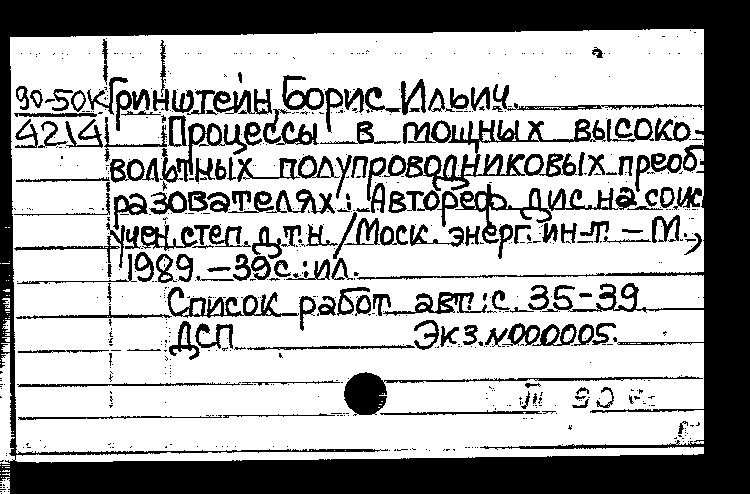 90-50К Гринштейн, Борис Ильич.
4214 Процессы в мощных высоко-
вольтных полупроводниковых преоб-
разователях: Автореф. дис. на соиск.
учен. степ. д.т.н. / Моск. энерг. ин-т. – М.,
1989. – 39 с.: ил.
Список работ авт.: с. 35-39.
ДСП Экз. №000005.
VII 90